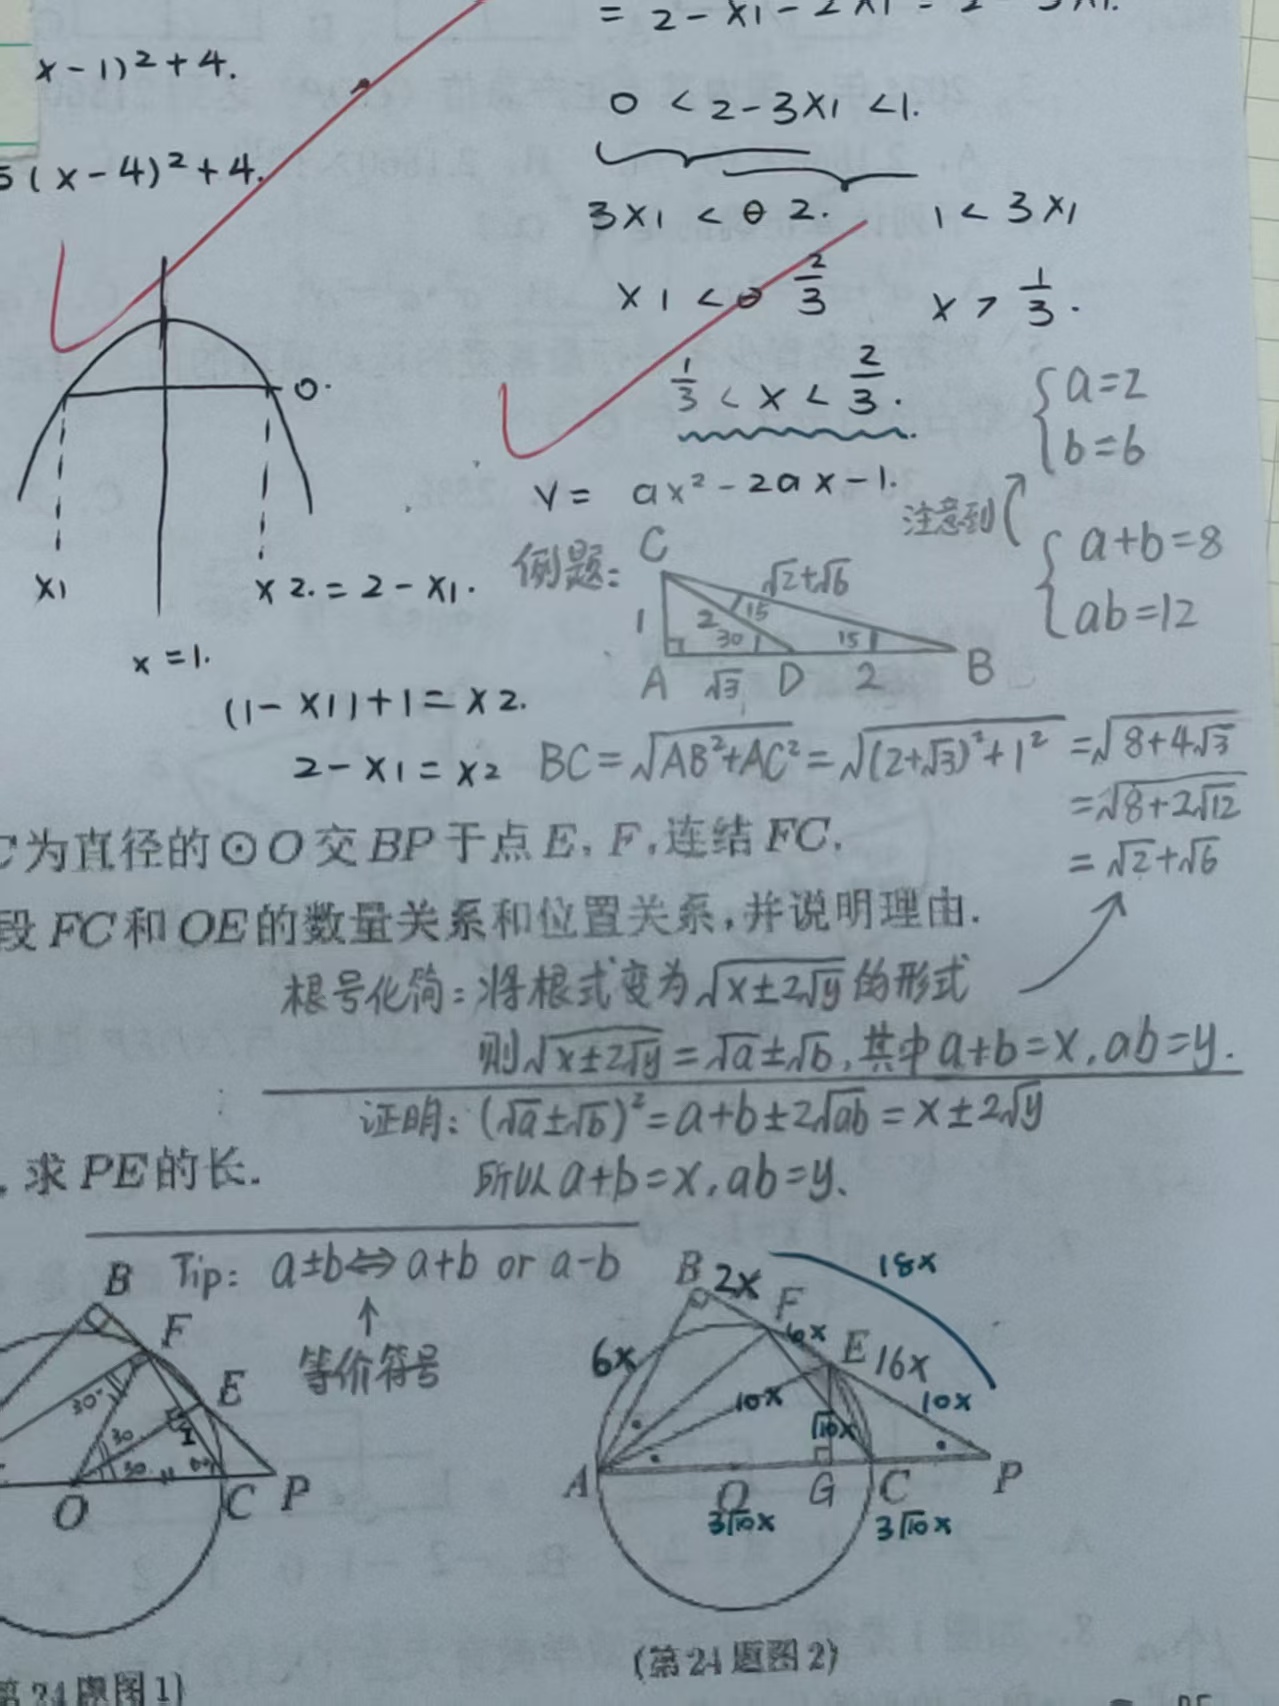 = 2 - x1 - 2x1 = 2 - 3x1.
x-1)²+4.
0 < 2-3x1 <1.
5(x-4)²+4.
3x1 < 2. 1 < 3x1
x1 < 2/3 x > 1/3.
1/3 < x < 2/3.
{a=2
b=6
y = ax²-2ax-1.
注意到
{a+b=8
ab=12
0.
x1 x2.=2-x1.
x=1.
(1-x1)+1=x2.
2-x1=x2
例题:
C
√2+√6
1 2 15
30 15
A √3 D 2 B
BC=√(AB²+AC²)=√((2+√3)²+1²)=√(8+4√3)
=√(8+2√12)
=√2+√6
C为直径的⊙O交BP于点E,F,连结FC.
段FC和OE的数量关系和位置关系,并说明理由.
根号化简:将根式变为√(x±2√y)的形式
则√(x±2√y)=√a±√b,其中a+b=x,ab=y.
证明:(√a±√b)²=a+b±2√(ab)=x±2√y
所以a+b=x,ab=y.
.求PE的长.
Tip: a±b⇔a+b or a-b
↑
等价符号
B
F
30°
E
30
30
O C P
B 2x F 18x
6x 6x E 16x
10x √10x 10x
A O G C P
3√10x 3√10x
第24题图1)
(第24题图2)